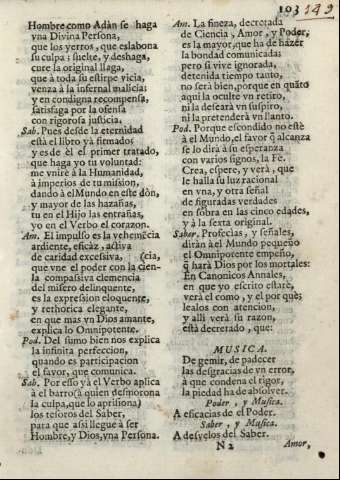 103 149
Hombre como Adàn se haga
vna Divina Persona,
que los yerros, que eslabona
su culpa: suelte, y deshaga,
cure la original llaga,
que à toda su estirpe vicia,
venza à la infernal malicia:
y en condigna recompensa,
satisfaga por la ofensa
con rigorosa justicia.
Sab. Pues desde la eternidad
està el libro ya firmados
y es de èl el primer tratado,
que haga yo tu voluntad:
me vnirè à la Humanidad,
à imperios de tu mission,
dando à el Mundo en este dòn,
y mayor de las hazañas,
tu en el Hijo las entrañas,
yo en el Verbo el corazon.
Am. El impulso es la vehemẽcia
ardiente, eficàz, activa
de caridad excessiva, (cia,
que vne el poder con la cien-
la compassiva clemencia
del misero delinquente,
es la expression eloquente,
y rethorica elegante,
en que mas vn Dios amante,
explica lo Omnipotente.
Pod. Del sumo bien nos explica
la infinita perfeccion,
quando es participacion
el favor, que comunica.
Sab. Por esso yà el Verbo aplica
à el barro (à quien desmorona
la culpa, que lo aprisiona)
los tesoros del Saber,
para que assi llegue à ser
Hombre, y Dios, vna Persona.
Am. La fineza, decretada
de Ciencia, Amor, y Poder,
es la mayor, que ha de hàzer
la bondad comunicada:
pero si vive ignorada,
detenida tiempo tanto,
no serà bien, porque en quãto
aqui la oculte vn retiro,
ni la desearà vn suspiro,
ni la pretenderà vn llanto.
Pod. Porque escondido no estè
à el Mundo, el favor q̃ alcanza
se lo dirà à su esperanza
con varios signos, la Fè.
Crea, espere, y verà, que
le halla su luz racional
en vna, y otra señal
de figuradas verdades
en sobra en las cinco edades,
y à la sexta original.
Saber. Profecias, y señales,
diràn à el Mundo pequeño
el Omnipotente empeño,
q̃ harà Dios por los mortales:
En Canonicos Annales,
en que yo escrito estarè,
verà el como, y el por què;
lealos con atencion,
y alli verà su razon,
està decretado, que:
MUSICA.
De gemir, de padecer
las desgracias de vn error,
à que condena el rigor,
la piedad ha de absolver.
Poder, y Musica.
A eficacias de el Poder.
Saber, y Musica.
A desvelos del Saber.
N 2 Amor,